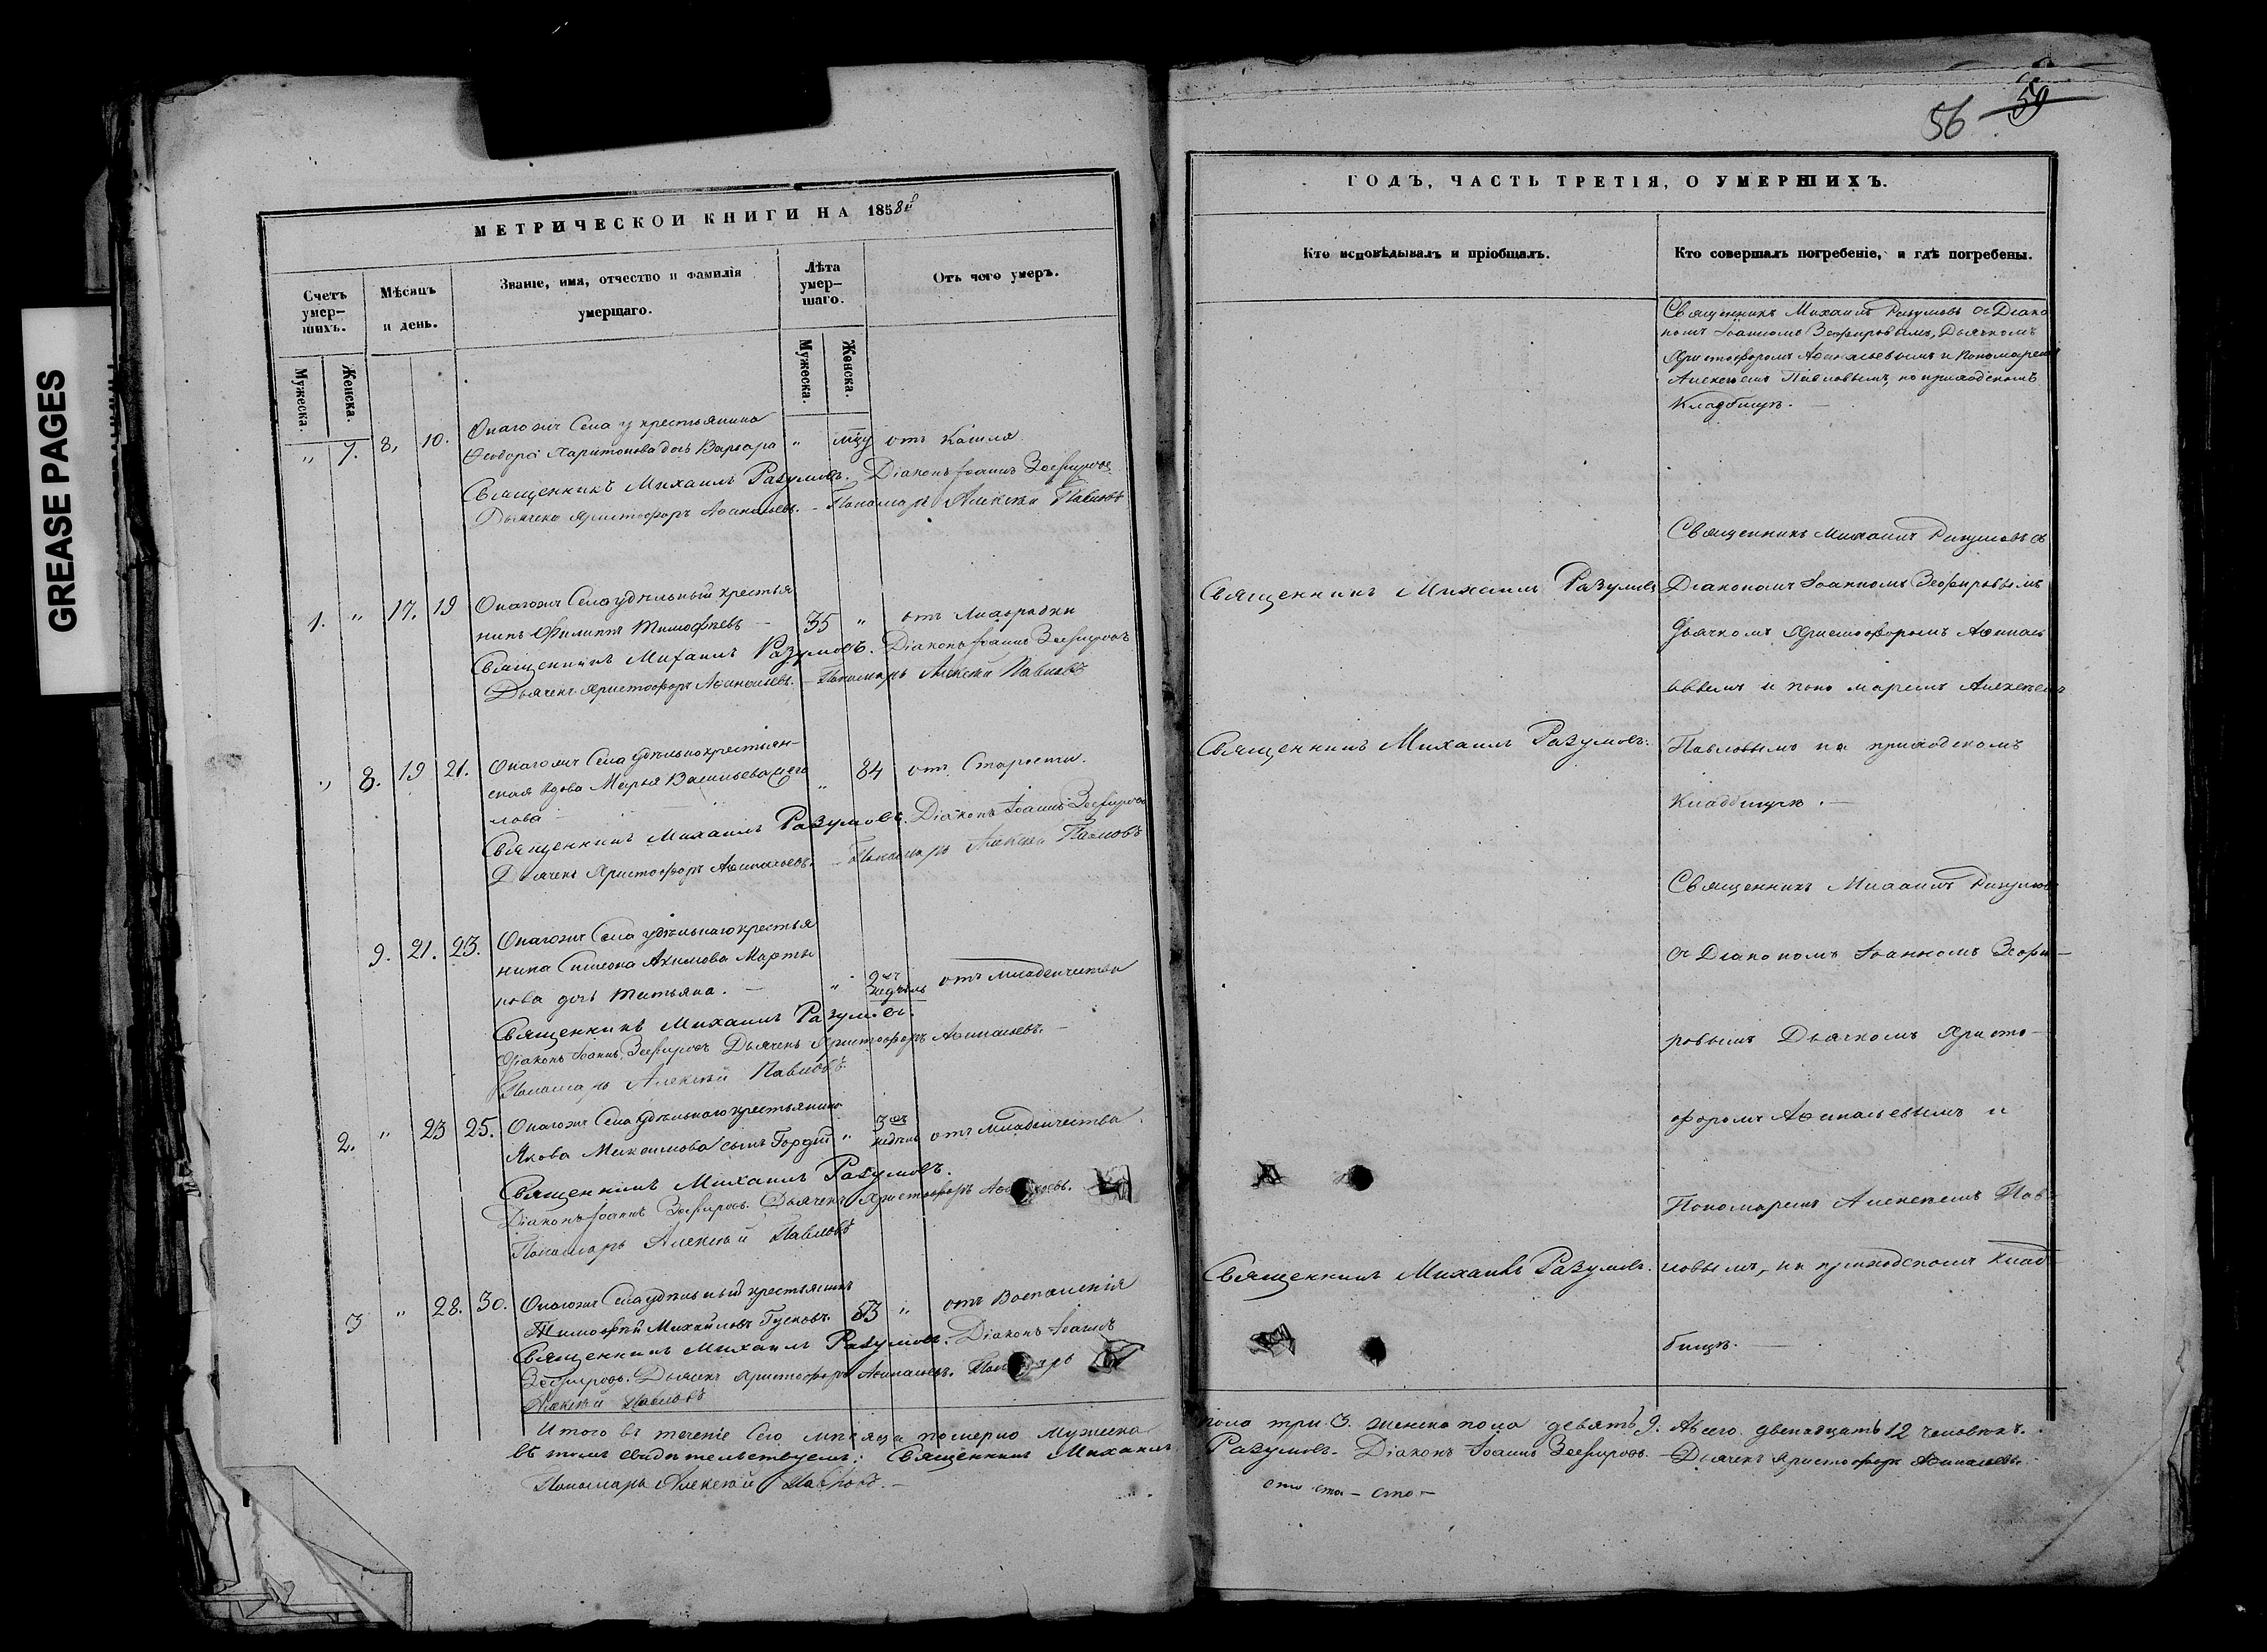 GREASE PAGES
МЕТРИЧЕСКОЙ КНИГИ НА 1858й
Счетъ умер-шихъ.
Мѣсяцъ и день.
Званіе, имя, отчество и фамилія умершаго.
Лѣта умер-шаго.
Отъ чего умеръ.
Мужеска.
Женска.
Мужеска.
Женска.
села у крестьянина
" 7. 8. 10. Ѳеодора Харитонова дочь Варвара " отъ Кашля
Священникъ Михаилъ Разумовъ. Діаконъ Іоаннъ Зефировъ
Дьячекъ Христофоръ Аѳанасьевъ. – Пономарь Алексѣй Павловъ
1. " 17. 19 Села удѣльный крестья
нинъ Филиппъ Тимофѣевъ – 35 " отъ Лихорадки
Священникъ Михаилъ Разумовъ. Діаконъ Іоаннъ Зефировъ
Дьячекъ Христофоръ Аѳанасьевъ. – Пономарь Алексѣй Павловъ
" 8. 19 21. Села удѣльнокрестьян-
ская вдова Марья Васильева " 84 отъ Старости.
лова
Священникъ Михаилъ Разумовъ. Діаконъ Іоаннъ Зефировъ
Дьячекъ Христофоръ Аѳанасьевъ. – Пономарь Алексѣй Павловъ
9. 21. 23. Села удѣльнаго крестья
нина Симеона Акимова Марты
нова дочь Татьяна. – " отъ младенчества
Священникъ Михаилъ Разумовъ.
Діаконъ Іоаннъ Зефировъ Дьячекъ Христофоръ Аѳанасьевъ. –
Пономарь Алексѣй Павловъ
2. " 23 25. Села удѣльнаго крестьянина
Якова Максимова сынъ Гордѣй 3 недѣль " отъ младенчества
Священникъ Михаилъ Разумовъ.
Діаконъ Іоаннъ Зефировъ. Дьячекъ Христофоръ Аѳанасьевъ.
Пономарь Алексѣй Павловъ
3 " 28. 30. Села удѣльный крестьянинъ
Тимофѣй Михайловъ Гусковъ. 53 " отъ Воспаленія
Священникъ Михаилъ Разумовъ. Діаконъ Іоаннъ
Зефировъ. Дьячекъ Христофоръ Аѳанасьевъ. Пономарь
Алексѣй Павловъ
Итого въ теченіе сего мѣсяца померло мужеска
въ томъ свидѣтельствуемъ: Священникъ Михаилъ
Пономарь Алексѣй Павловъ. –
56 50
ГОДЪ, ЧАСТЬ ТРЕТІЯ, О УМЕРШИХЪ.
Кто исповѣдывалъ и пріобщалъ.
Кто совершалъ погребеніе, и гдѣ погребены.
Священникъ Михаилъ Разумовъ съ Діако
номъ Іоанномъ Зефировымъ, Дьячкомъ
Христофоромъ Аѳанасьевымъ и Пономаремъ
Алексѣемъ Павловымъ, на приходскомъ
Кладбищѣ. –
Священникъ Михаилъ Разумовъ съ
Священникъ Михаилъ Разумовъ Діакономъ Іоанномъ Зефировымъ
Дьячкомъ Христофоромъ Аѳанась
евымъ и пономаремъ Алексѣемъ
Священникъ Михаилъ Разумовъ. Павловымъ на приходскомъ
Кладбищѣ. –
Священникъ Михаилъ Разумовъ
съ Діакономъ Іоанномъ Зефи-
ровымъ Дьячкомъ Христо-
форомъ Аѳанасьевымъ и
Пономаремъ Алексѣемъ Пав-
Священникъ Михаилъ Разумовъ. ловымъ, на приходскомъ Клад
бищѣ. –
пола три 3. женска пола девять 9. Авсего двенадцать 12 человѣкъ.
Разумовъ. Діаконъ Іоаннъ Зефировъ. – Дьячекъ Христофоръ Аѳанасьевъ.